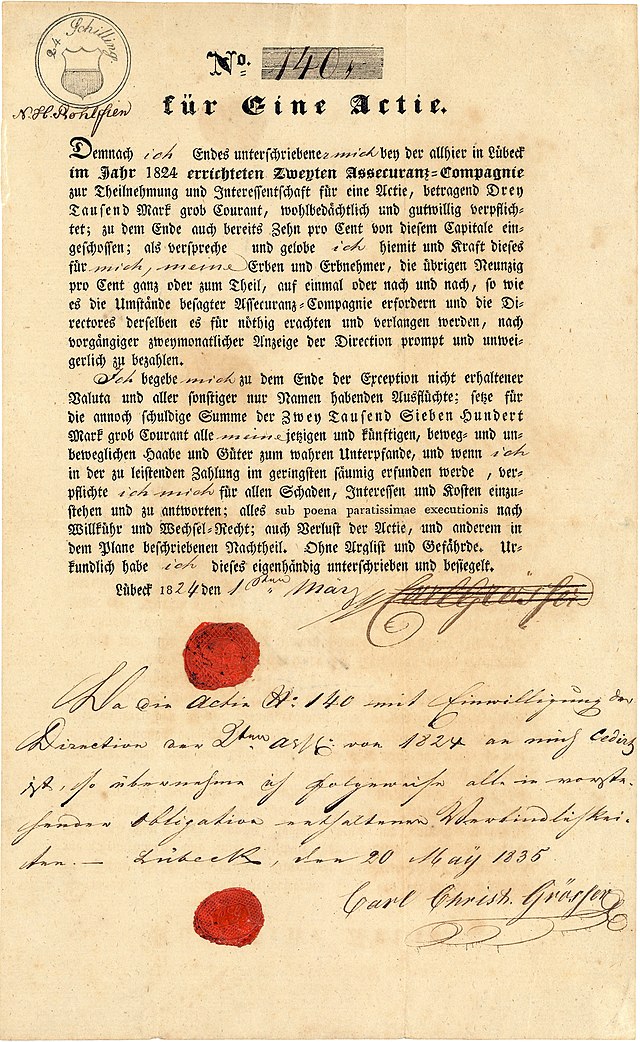 24 Schilling
No. 140
N. H. Rohlffen
für Eine Actie.
Demnach ich Endes unterschriebener mich bey der allhier in Lübeck
im Jahr 1824 errichteten Zweyten Assecuranz-Compagnie
zur Theilnehmung und Interessentschaft für eine Actie, betragend Drey
Tausend Mark grob Courant, wohlbedächtlich und gutwillig verpflich-
tet; zu dem Ende auch bereits Zehn pro Cent von diesem Capitale ein-
geschossen; als verspreche und gelobe ich hiemit und Kraft dieses
für mich, meine Erben und Erbnehmer, die übrigen Neunzig
pro Cent ganz oder zum Theil, auf einmal oder nach und nach, so wie
es die Umstände besagter Assecuranz-Compagnie erfordern und die Di-
rectores derselben es für nöthig erachten und verlangen werden, nach
vorgängiger zweymonatlicher Anzeige der Direction prompt und unwei-
gerlich zu bezahlen.
Ich begebe mich zu dem Ende der Exception nicht erhaltener
Valuta und aller sonstiger nur Namen habenden Ausflüchte; setze für
die annoch schuldige Summe der Zwey Tausend Sieben Hundert
Mark grob Courant alle meine jetzigen und künftigen, beweg- und un-
beweglichen Haabe und Güter zum wahren Unterpfande, und wenn ich
in der zu leistenden Zahlung im geringsten säumig erfunden werde, ver-
pflichte ich mich für allen Schaden, Interessen und Kosten einzu-
stehen und zu antworten; alles sub poena paratissimae executionis nach
Willkühr und Wechsel-Recht; auch Verlust der Actie, und anderem in
dem Plane beschriebenen Nachtheil. Ohne Arglist und Gefährde. Ur-
kundlich habe ich dieses eigenhändig unterschrieben und besiegelt.
Lübeck 1824 den 1sten März
Da die Actie No: 140 mit Einwilligung der
Direction der 2ten von 1824 an mich Cedirt
ist, so übernehme ich folgeweise alle in vorste-
hender Obligation enthaltenen Verbindlichkei-
ten. — Lübeck, den 20 May 1835
Carl Christ. Grösser